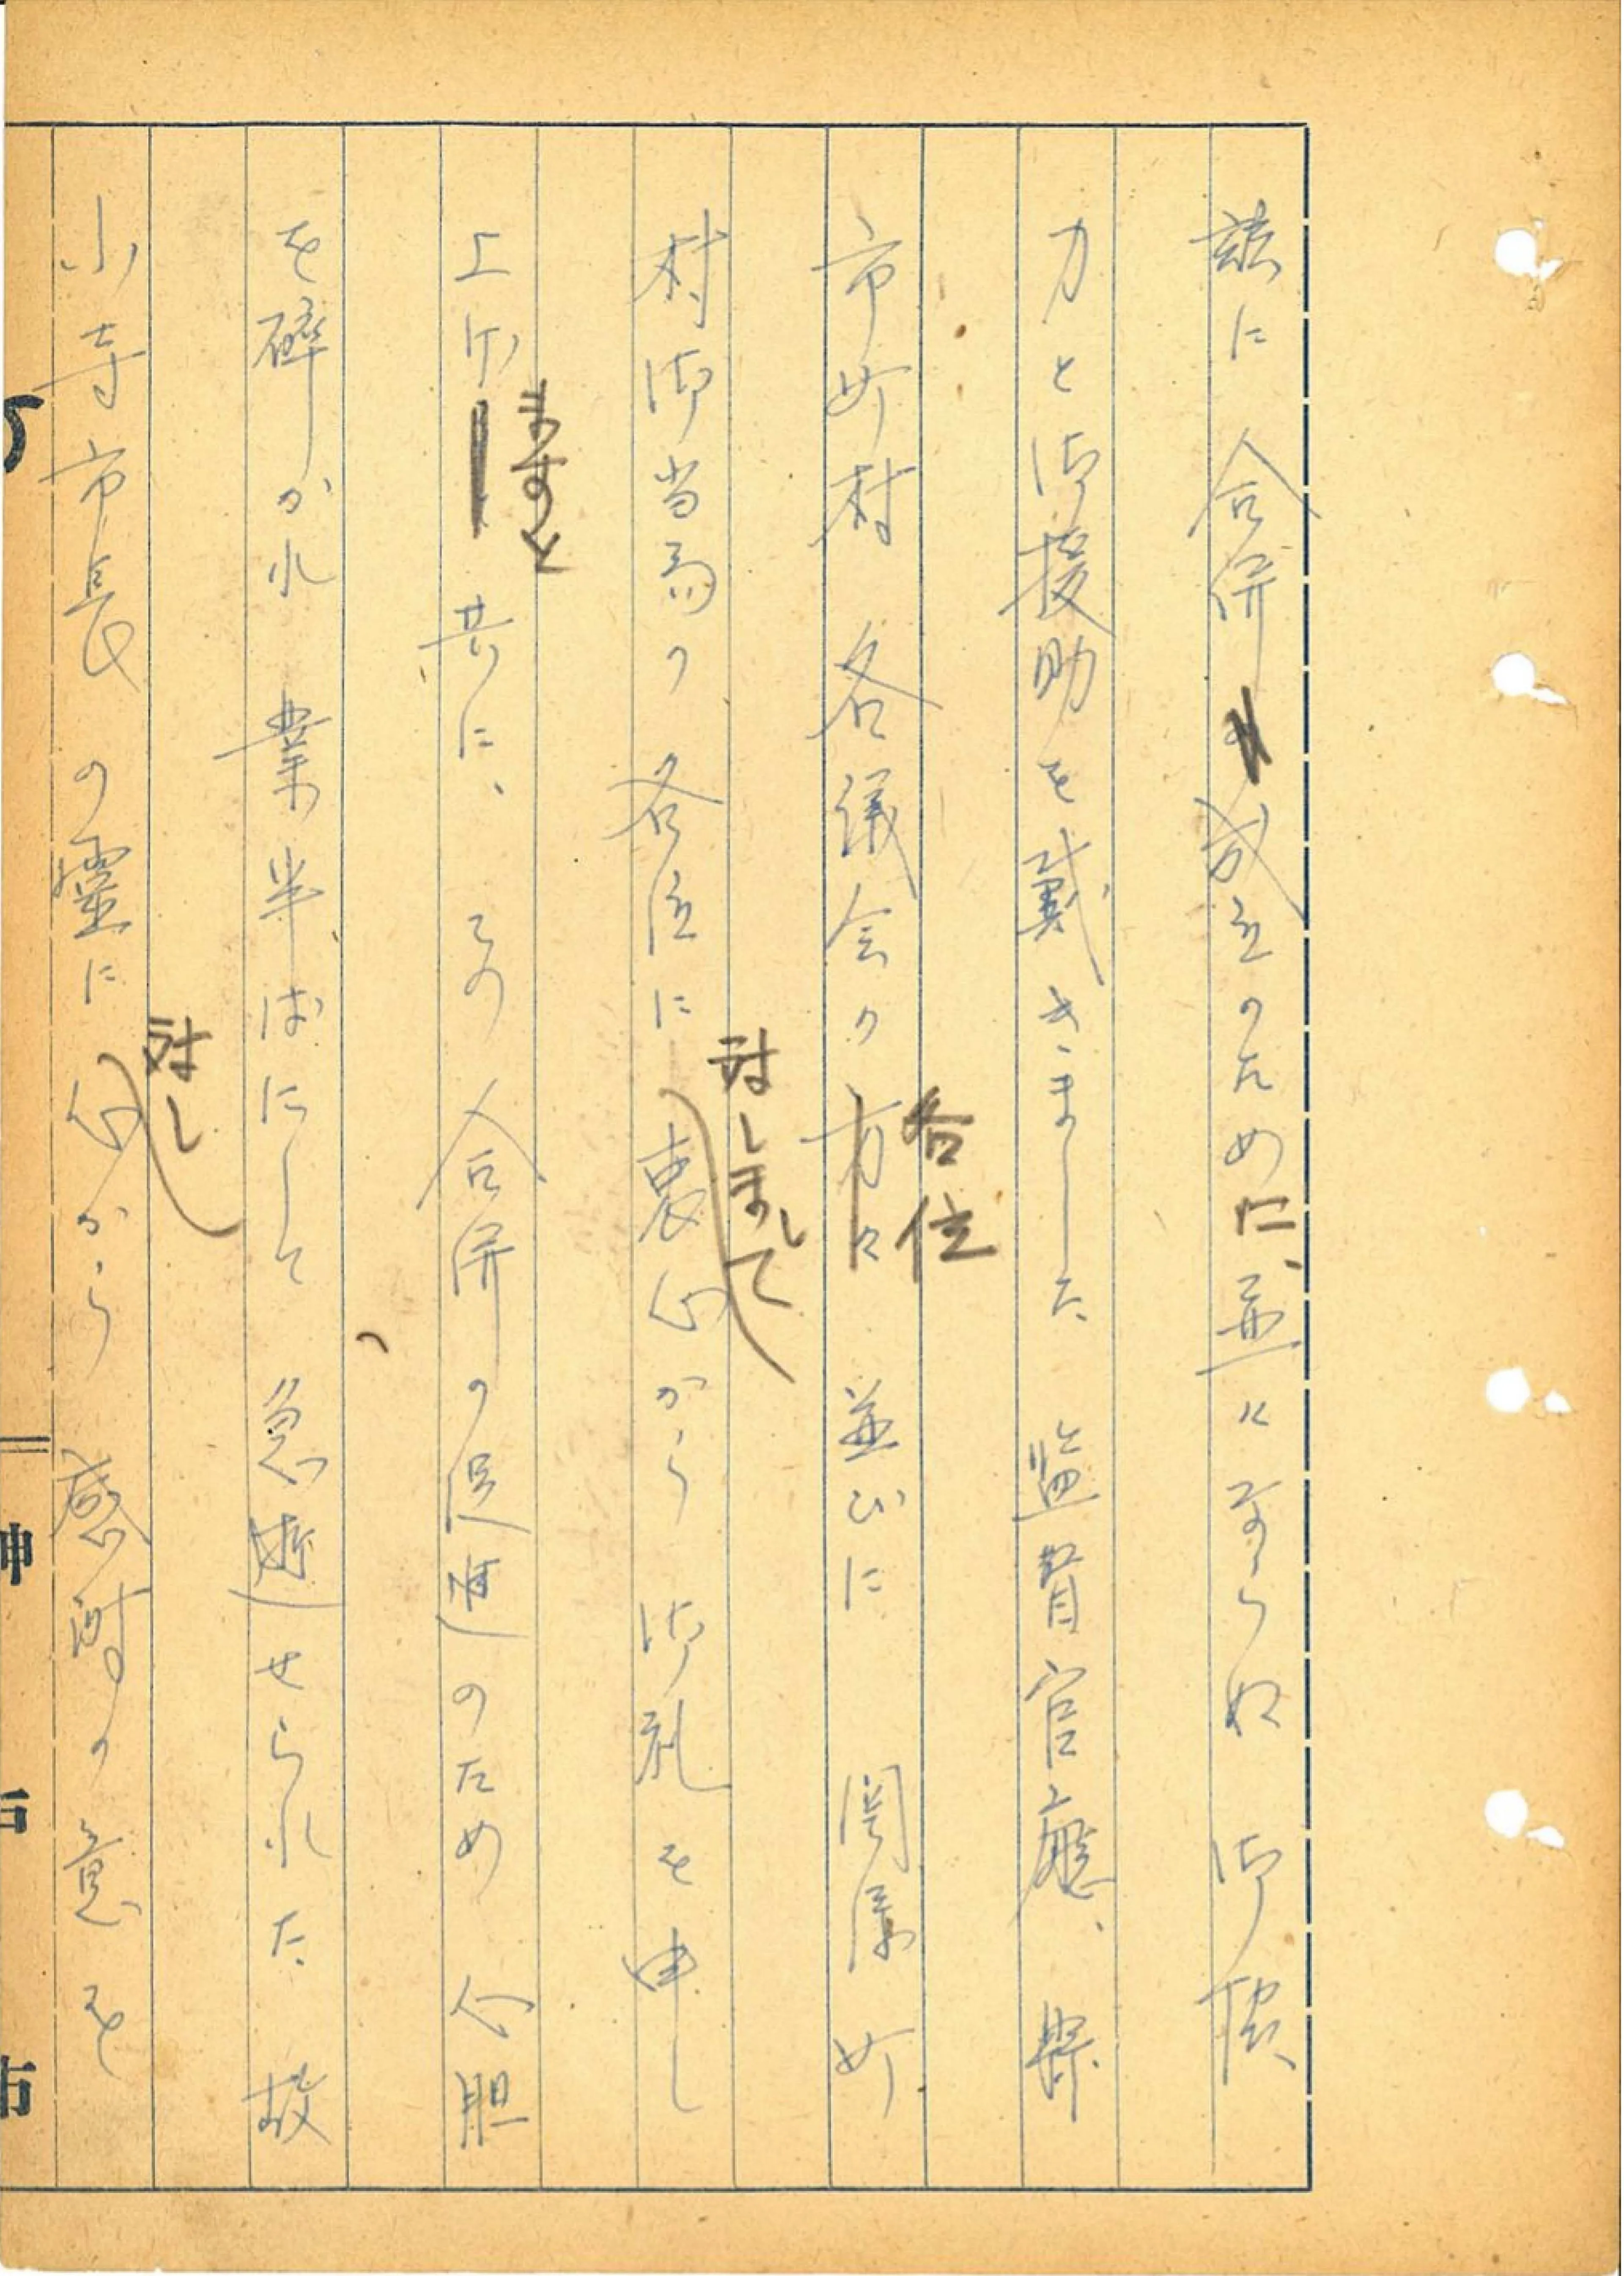 茲に 合併成立のために、並々ならぬ 御
力と御援助を戴きました 監督官廳、縣
各位
市町村 各議会の方々 並びに 関係町
対しまして
村御当局の 各位に 衷心から 御礼を申し
ますると
上げ 共に、その 合併の促進のため 心胆
を砕かれ 業半ばにして、急逝せられた 故
対し
小寺市長の靈に 心から 感謝の意を
神戸市